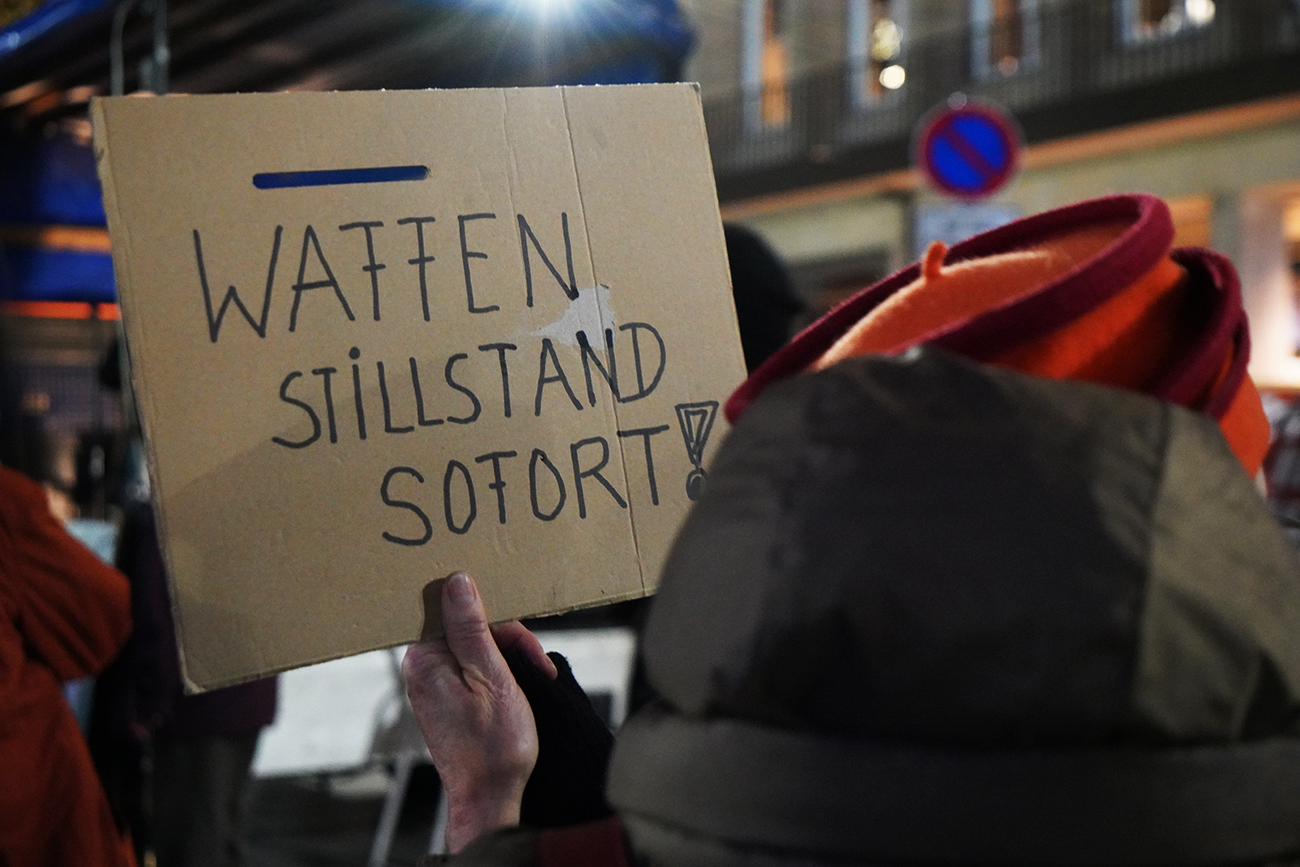 WAFFEN
STiLLSTAND
SOFORT!